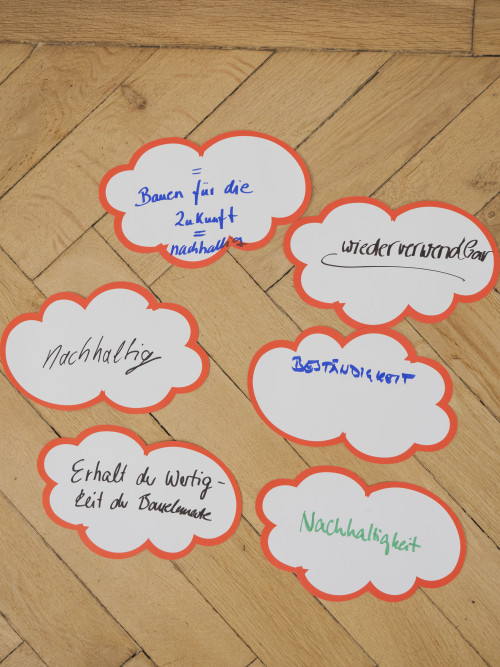 =
Bauen für die
Zukunft
=
nachhaltig
wiederverwendbar
nachhaltig
BESTÄNDIGKEIT
Erhalt der Wertig-
keit der Bauelemente
Nachhaltigkeit